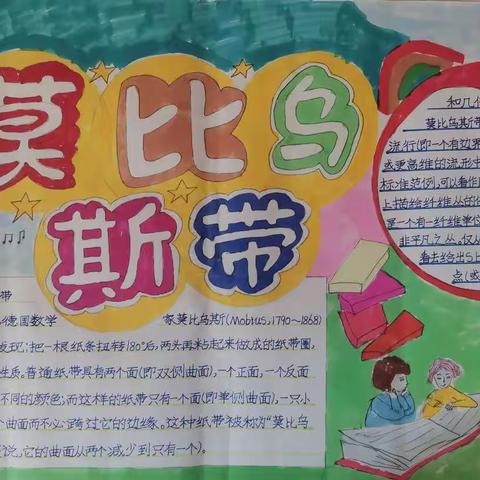 莫比乌
斯带
和几何
莫比乌斯带
流行(即一个有边界
标准范例,可以看作
上描绘纤维丛的
非平凡之丛。仅从
带
德国数学家莫比乌斯(Mobius,1790~1868)
发现:把一根纸条扭转180°后,两头再粘起来做成的纸带圈,
性质。普通纸带具有两个面(即双侧曲面),一个正面,一个反面
不同的颜色;而这样的纸带只有一个面(即单侧曲面),一只小
个曲面而不必跨过它的边缘。这种纸带被称为“莫比乌
说,它的曲面从两个减少到只有一个)。